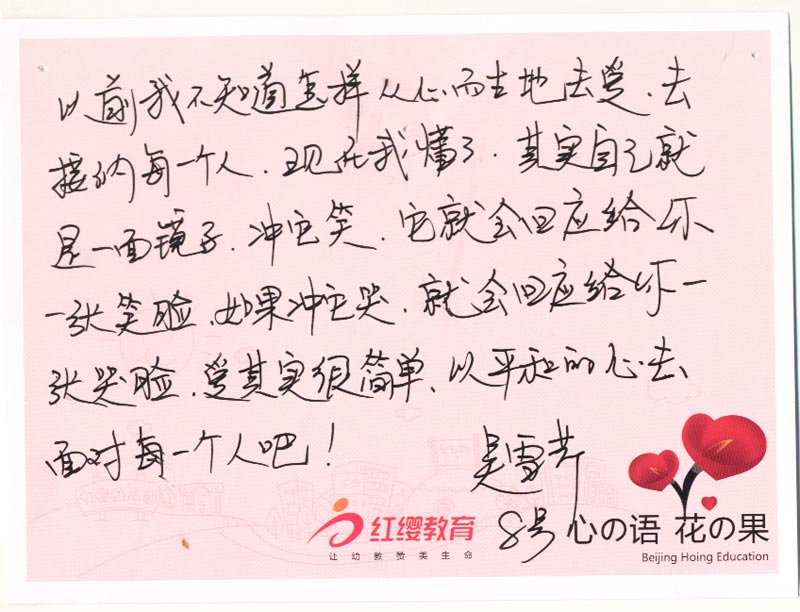 以前我不知道怎样从心而生地去爱、去
接纳每一个人、现在我懂了、其实自己就
是一面镜子、冲它笑、它就会回应给你
一张笑脸、如果冲它哭、就会回应给你一
张哭脸、爱其实很简单、以平和的心去
面对每一个人吧！
吴雪芹
8号
红缨教育
让幼教赞美生命
心の语 花の果
Beijing Hoing Education